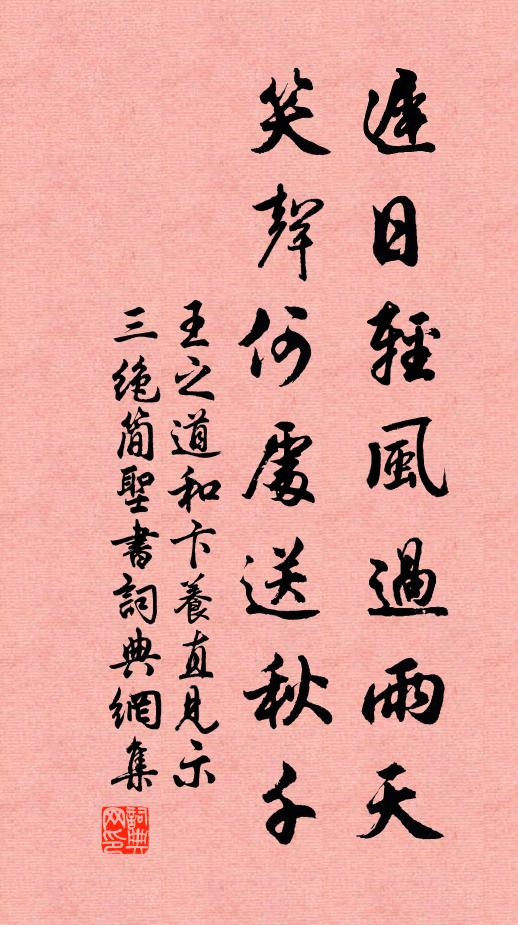 遲日輕風過雨天
笑聲何處送秋千
王之道和卞養直見示
三絶簡聖書詞典網集
詞典网印